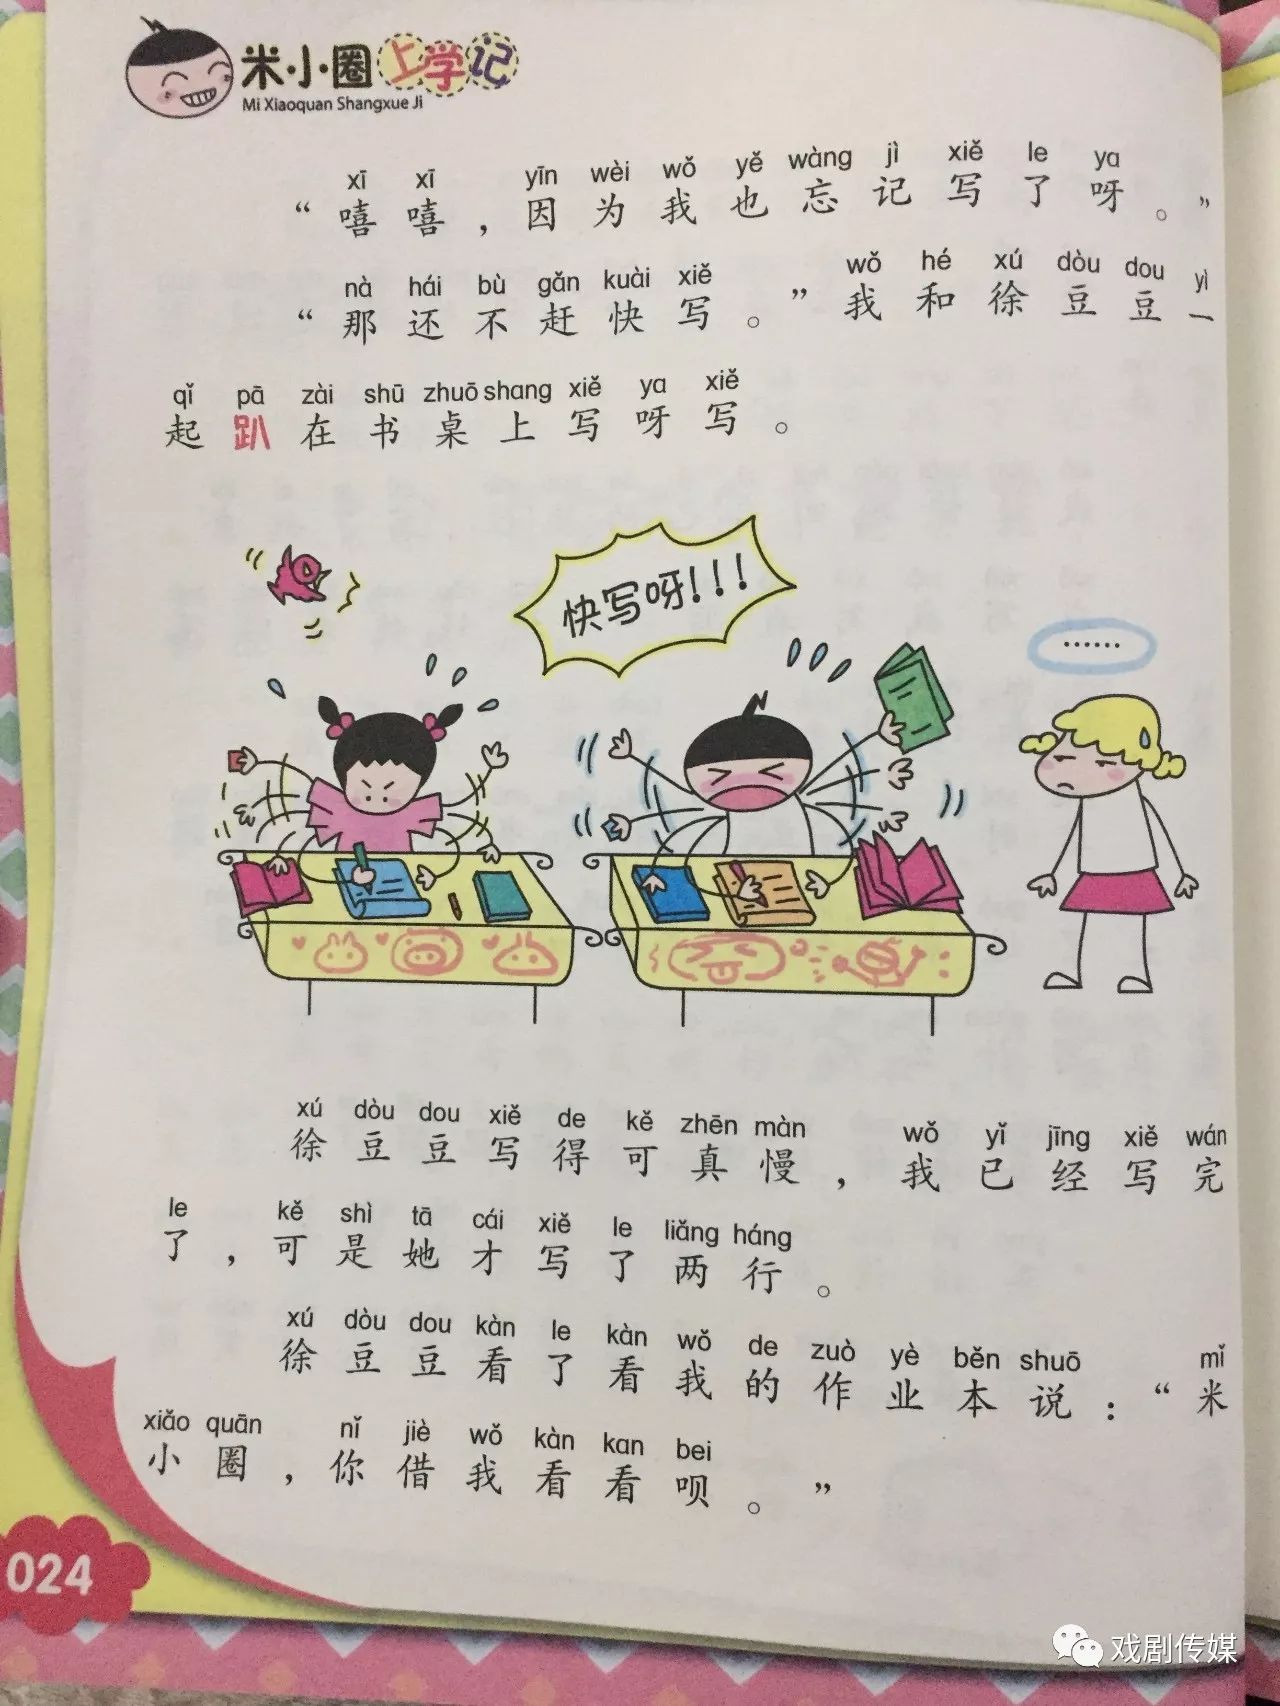 米·小·圈上学记
Mi Xiaoquan Shangxue Ji
xī xī yīn wèi wǒ yě wàng jì xiě le ya
“嘻嘻，因为我也忘记写了呀。”
nà hái bù gǎn kuài xiě wǒ hé xú dòu dou yì
“那还不赶快写。”我和徐豆豆一
qǐ pā zài shū zhuō shang xiě ya xiě
起趴在书桌上写呀写。
快写呀!!!
……
xú dòu dou xiě de kě zhēn màn wǒ yǐ jīng xiě wán
徐豆豆写得可真慢，我已经写完
le kě shì tā cái xiě le liǎng háng
了，可是她才写了两行。
xú dòu dou kàn le kàn wǒ de zuò yè běn shuō mǐ
徐豆豆看了看我的作业本说：“米
xiǎo quān nǐ jiè wǒ kàn kan bei
小圈，你借我看看呗。”
024
戏剧传媒